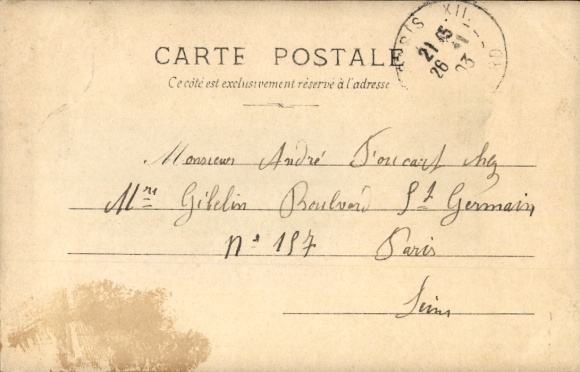 CARTE POSTALE
Ce côté est exclusivement réservé à l'adresse
PARIS XII
21 45
26 11
03
Monsieur André Foucart chez
Mme Gibelin Boulvard St Germain
N° 157 Paris
Seine